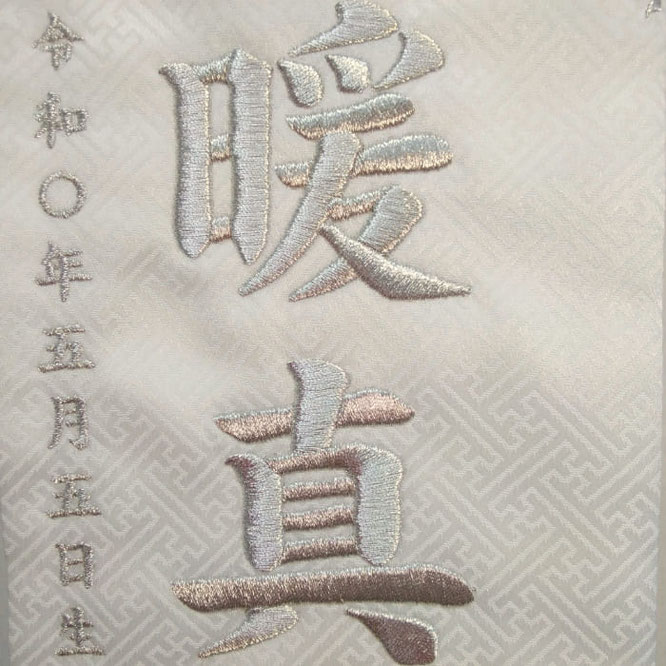 暖真
令和〇年五月五日生